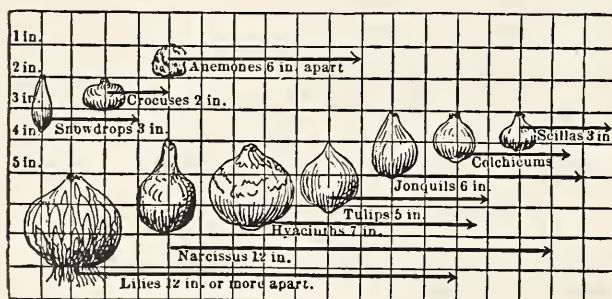 1 in.
2 in.
Anemones 6 in. apart
3 in.
Crocuses 2 in.
4 in.
Snowdrops 3 in.
Scillas 3 in
Colchicums
5 in.
Jonquils 6 in.
Tulips 5 in.
Hyacinths 7 in.
Narcissus 12 in.
Lilies 12 in. or more apart.